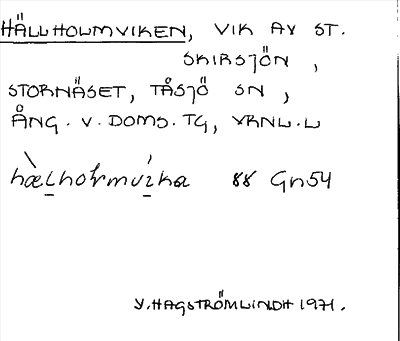 HÄLLHOLMVIKEN, VIK AV ST.
SKIRSJÖN,
STORNÄSET, TÅSJÖ SN,
ÅNG. V. DOMS. TG, VRNL.L
hælholmvika 88 Gn54
Y. HAGSTRÖMLINDH 1971.